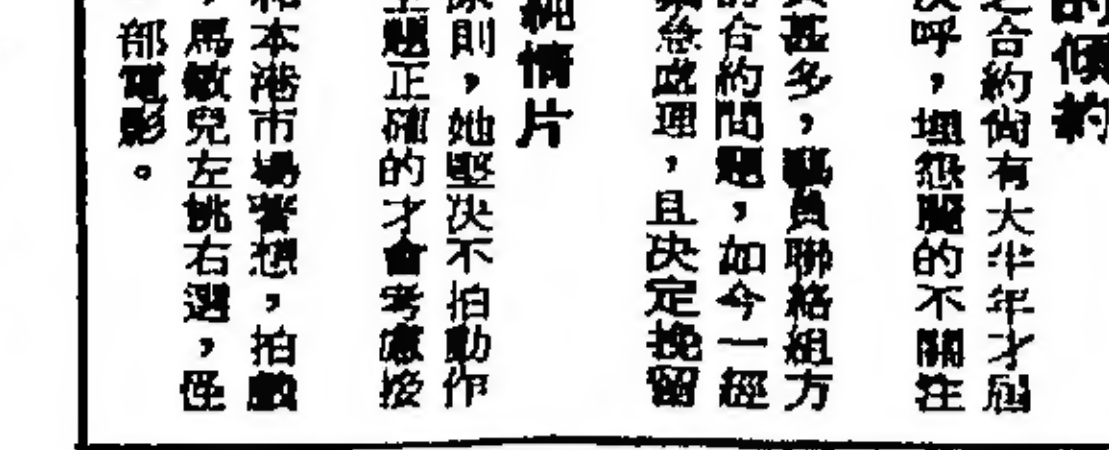 的傾約
之合約尙有大半年才屆
次呼，埋怨膽的不關注
員甚多，藝員聯絡組方
的合約間題，如今一經
緊急處理，且决定挽留
純情片
原則，她堅决不拍動作
主題正確的才會考慮接
和本港市場着想，拍戲
，馬敏兒左挑右選，怪
部電影。